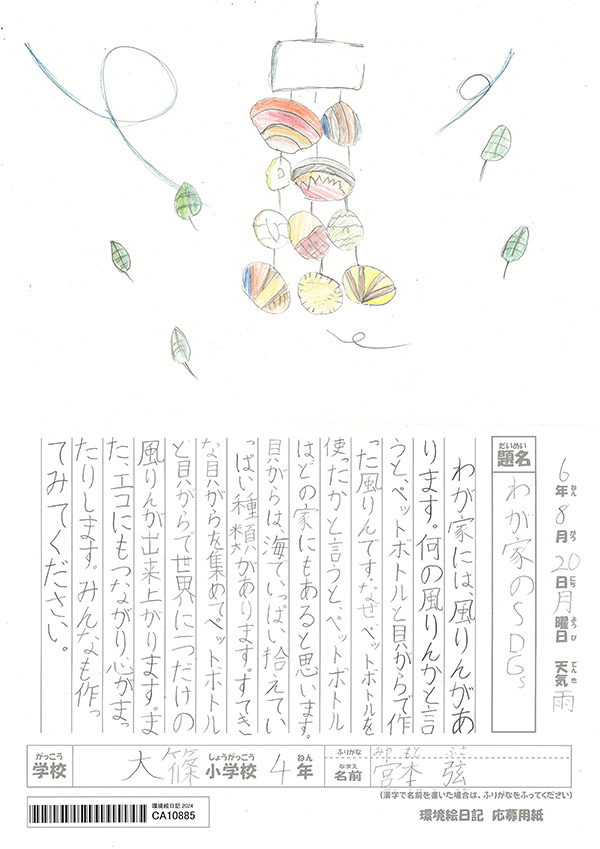 6年8月20日月曜日 天気雨
ねん がつ にち ようび てんき
だいめい
題名 わが家のSDGs
わが家には、風りんがあ
ります。何の風りんかと言
うと、ペットボトルと貝がらで作
った風りんです。なぜ、ペットボトルを
使たかと言うと、ペットボトル
はどの家にもあると思います。
貝がらは、海でいっぱい拾えてい
っぱい種類があります。すてき
な貝がらを集めてペットボトル
と貝がらで世界に一つだけの
風りんが出来上がります。ま
た、エコにもつながり心がまっ
たりします。みんなも作っ
てみてください。
がっこう しょうがっこう ねん
学校 大篠 小学校 4年
ふりがな みやもと ふさ
なまえ
名前 宮本 弦
(漢字で名前を書いた場合は、ふりがなをふってください)
環境絵日記 2024
CA10885
環境絵日記 応募用紙